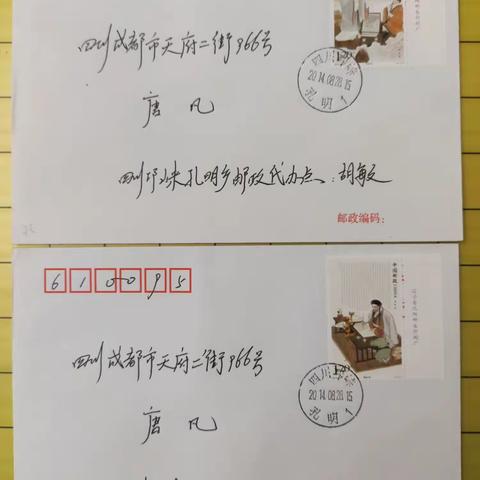 四川成都市天府二街966号
唐凡
四川邛崃孔明乡邮政代办点：胡敏
邮政编码：
四川邛崃
2014.08.28.15
孔明 1
610095
中国邮政
四川成都市天府二街966号
唐凡
四川邛崃
2014.08.28.15
孔明 1